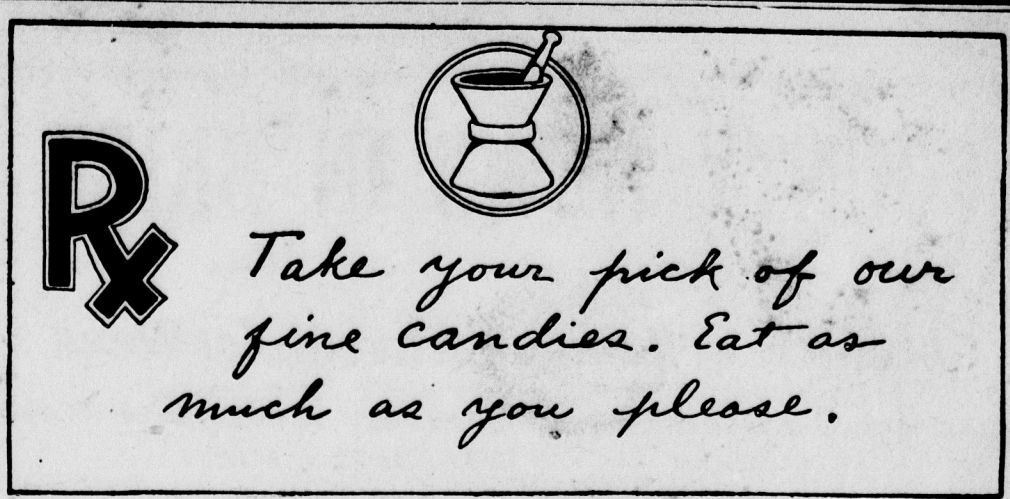 Rx
Take your pick of our
fine candies. Eat as
much as you please.